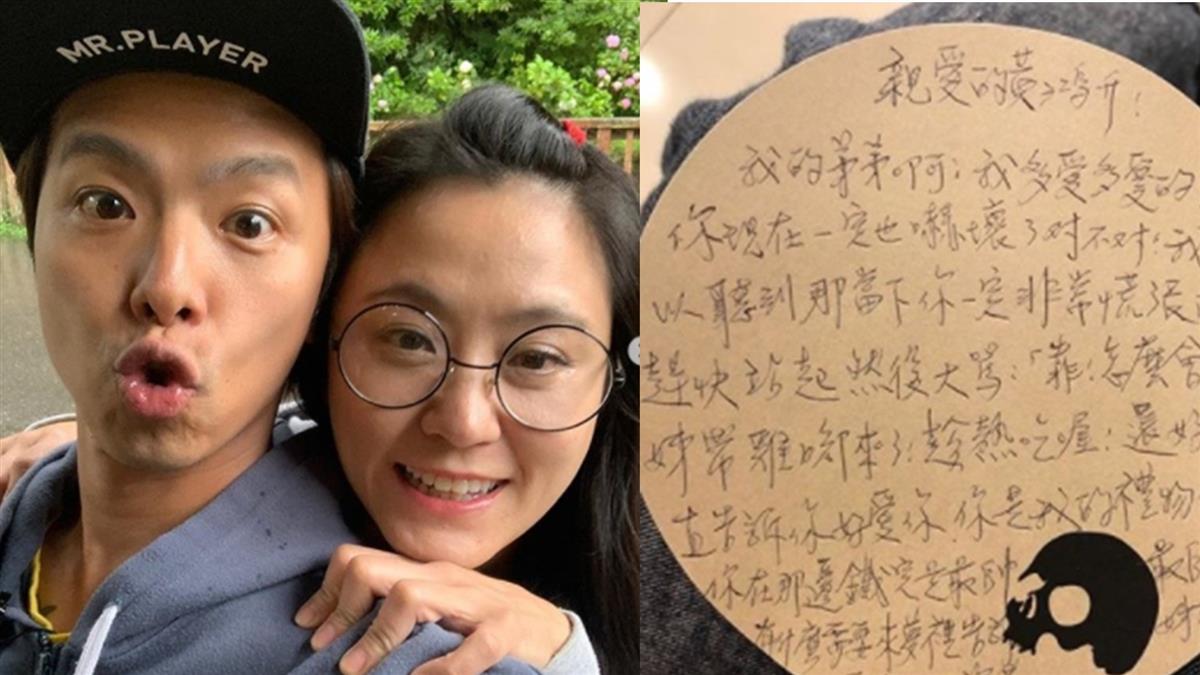 MR.PLAYER
親愛的黃鴻升！
我的弟弟啊！我多愛多愛的
你現在一定也嚇壞了对不对！我
以聽到那當下你一定非常慌張
趕快站起然後大罵：「靠！怎麼會
姊帶雞腳來了！趁熱吃喔！還好
直告訴你好愛你 你是我的禮物
你在那邊鐵定是最帥 最
有什麼需要來夢裡告 姊